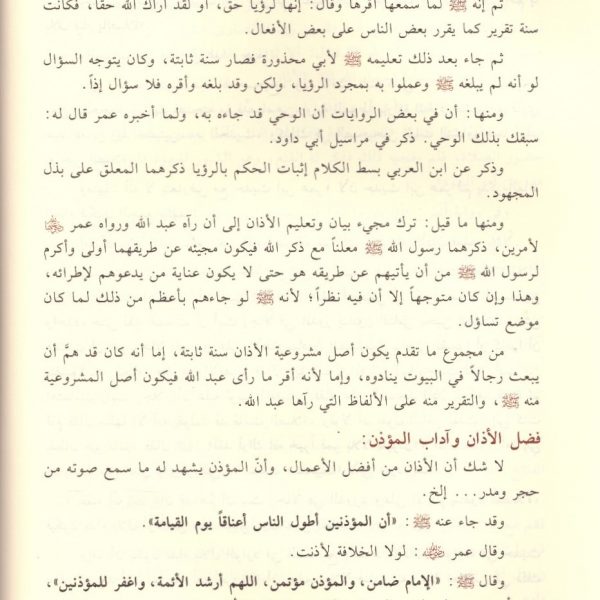 ثم إنه ﷺ لما سمعها أقرها وقال: إنها لرؤيا حق، أو لقد أراك الله حقاً، فكانت
سنة تقرير كما يقرر بعض الناس على بعض الأفعال.
ثم جاء بعد ذلك تعليمه ﷺ لأبي محذورة فصار سنة ثابتة، وكان يتوجه السؤال
لو أنه لم يبلغه ﷺ وعملوا به بمجرد الرؤيا، ولكن وقد بلغه وأقره فلا سؤال إذاً.
ومنها: أن في بعض الروايات أن الوحي قد جاءه به، ولما أخبره عمر قال له:
سبقك بذلك الوحي. ذكر في مراسيل أبي داود.
وذكر عن ابن العربي بسط الكلام إثبات الحكم بالرؤيا ذكرهما المعلق على بذل
المجهود.
ومنها ما قيل: ترك مجيء بيان وتعليم الأذان إلى أن رآه عبد الله ورواه عمر رضي الله عنه
لأمرين، ذكرهما رسول الله ﷺ معلناً مع ذكر الله فيكون مجيئه عن طريقهما أولى وأكرم
لرسول الله ﷺ من أن يأتيهم عن طريقه هو حتى لا يكون عناية من يدعوهم لإطرائه،
وهذا وإن كان متوجهاً إلا أن فيه نظراً؛ لأنه ﷺ لو جاءهم بأعظم من ذلك لما كان
موضع تساؤل.
من مجموع ما تقدم يكون أصل مشروعية الأذان سنة ثابتة، إما أنه كان قد همَّ أن
يبعث رجالاً في البيوت ينادوه، وإما لأنه أقر ما رأى عبد الله فيكون أصل المشروعية
منه ﷺ، والتقرير منه على الألفاظ التي رآها عبد الله.
فضل الأذان وآداب المؤذن:
لا شك أن الأذان من أفضل الأعمال، وأنّ المؤذن يشهد له ما سمع صوته من
حجر ومدر... إلخ.
وقد جاء عنه ﷺ: «أن المؤذنين أطول الناس أعناقاً يوم القيامة».
وقال عمر رضي الله عنه: لولا الخلافة لأذنت.
وقال ﷺ: «الإمام ضامن، والمؤذن مؤتمن، اللهم أرشد الأئمة، واغفر للمؤذنين»،